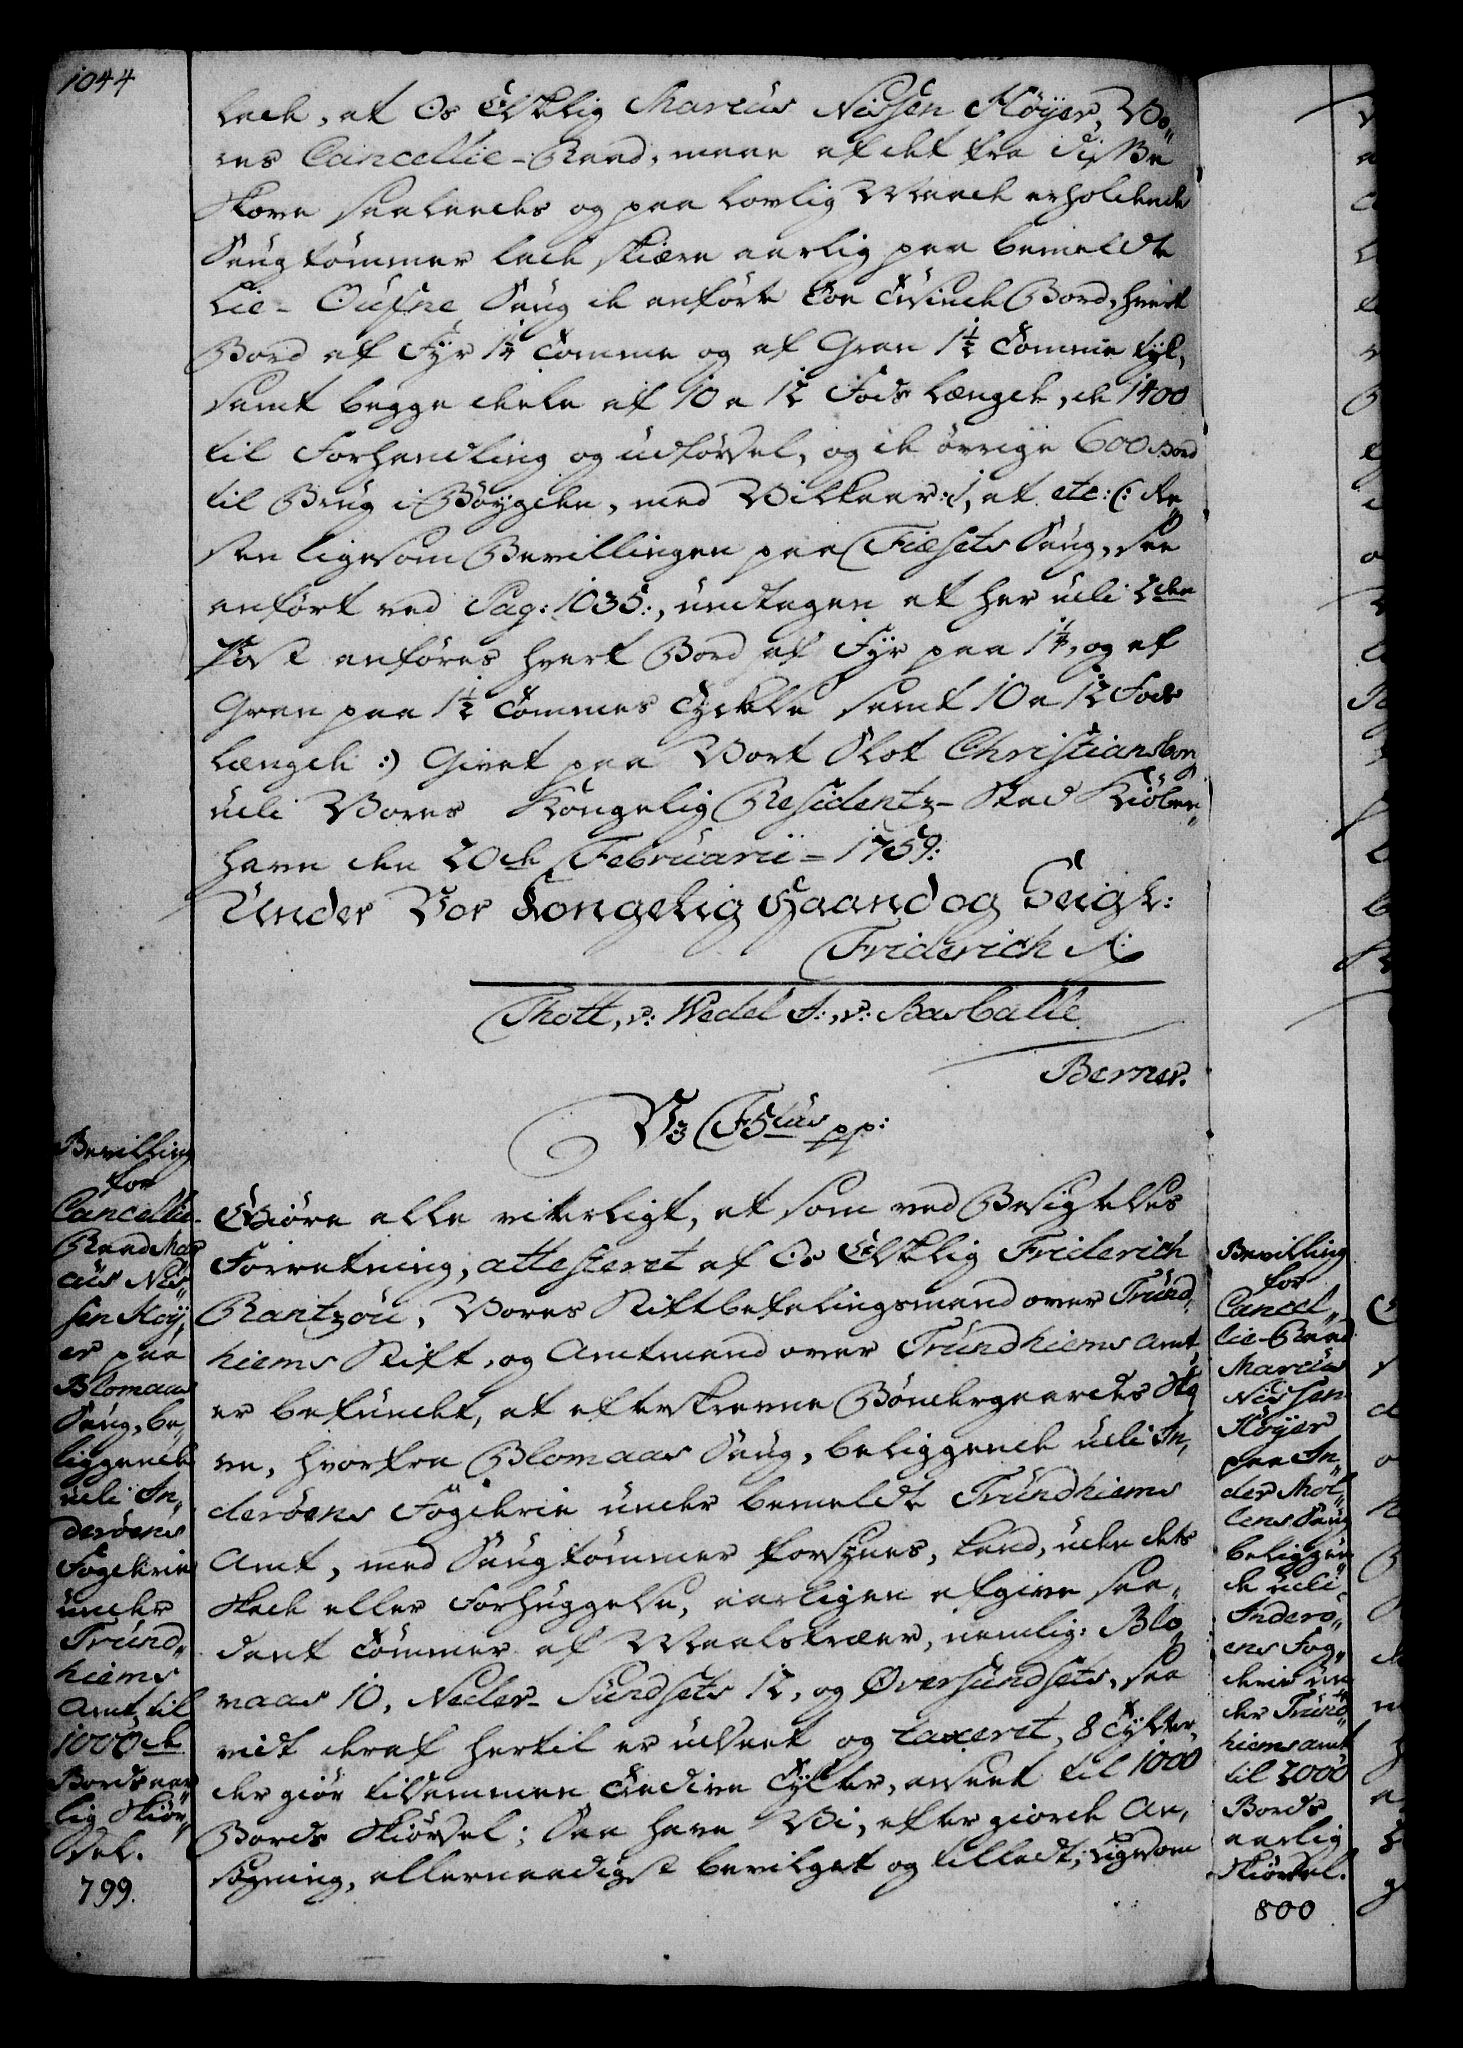 1044
lade, at Os Elskelig Marcus Nissen Höyer, Vo„
res Cancellie-Raad, maae af det fra disse
Skove saaledes og paa lovlig Maade erholdende
Saugtömmer lade skiære aarlig paa bemeldte
Lie-Oufne Saug de anförte Toe Tusinde Bord, hvert
Bord af Fyr 1¼ Tomme og af Gran 1½ Tomme tyk,
samt begge dele af 10 a 12 Fods Længde, de 1400
til Forhandling og udförsel, og de övrige 600 Bord
til Brug i Böygden, med Vilkaar: 1, at etc: (: Re„
sten ligesom Bevillingen paa Fiæsets Saug, saa
anfört ved Pag: 1035:, undtagen at her udi 2den
Post anföres hvert Bord af Fyr paa 1¼, og af
Gran paa 1½ Tommes Tyckelse samt 10 a 12 Fods
Længde :) Givet paa Vort Slot Christiansborg
udi Vores Kongelig Residentz-Stad Kiöben„
havn den 20de Februarii = 1759:
Under Vor Kongelig Haand og Seigl:
Friderich R:
Thott, v: Wedel F:, v: Barballe
Berner.
Vi F5tus pp:
Bevilling
for
Cancellie-
Raad Mar
cus Nis„
sen Höy„
er paa
Blomaas
Saug, be„
liggende
udi In„
deröens
Fogderie
under
Trund„
hiems
Amt, til
1000de
Bords aar„
lig Skiör„
sel.
799.
Giöre alle vitterligt, at som ved Besigtelses
Forretning, attesteret af Os Elskelig Friderich
Rantzou, Vores Stiftbefalingsmand over Trund„
hiems Stift, og Amtmand over Trundhiems Amt,
er befundet, at efterskrevne Böndergaardes Sko„
ve, hvorfra Blomaas Saug, beliggende udi In„
deröens Fogderie under bemeldte Trundhiems
Amt, med Saugtömmer forsynes, kand, uden dets
Skade eller Forhuggelse, aarligen afgive saa„
dant Tömmer af Maalstræer, nemlig: Blo„
maas 10, Neder-Sundsets 12, og Øversundsets, saa
vidt deraf hertil er udseet og taxeret, 8 Tylter,
der giör tilsammen Tredive Tylter, anseet til 1000
Bords Skiörsel; Saa have Vi, efter giorde An„
sögning, allernaadigst bevilget og tilladt, ligesom
Bevilling
for
Cancel„
lie-Raad
Marcus
Nissen
Höyer
paa In„
der Mol„
lens Saug
beliggen„
de udi
Inderö„
ens Fog„
derie un
der Trund
hiems Amt
til 2000
Bords
aarlig
Skiörsel.
800